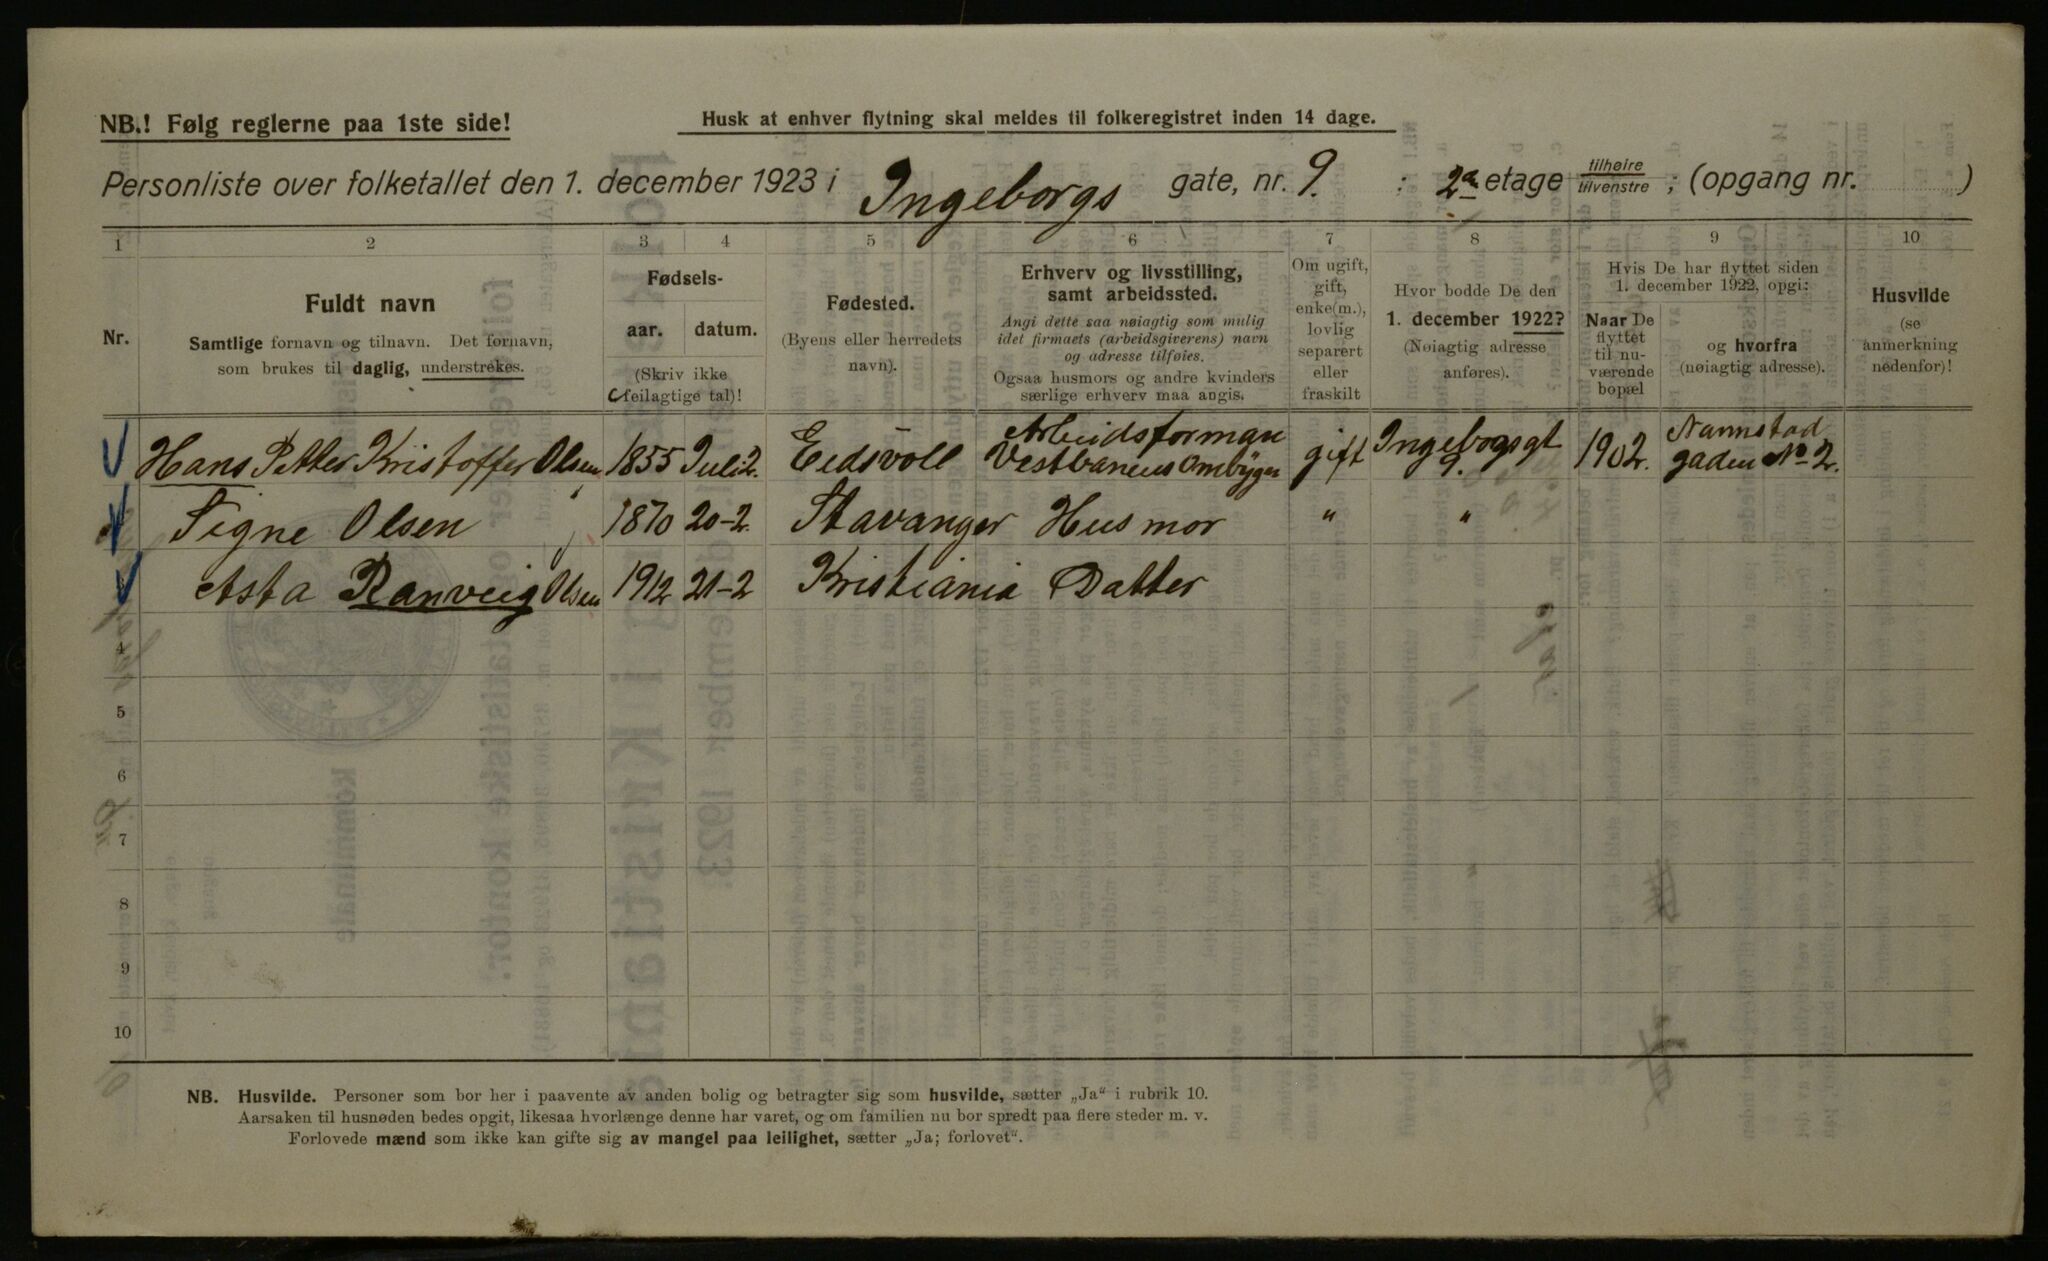 NB.! Følg reglerne paa 1ste side!
Husk at enhver flytning skal meldes til folkeregistret inden 14 dage.
Personliste over folketallet den 1. december 1923 i Ingeborgs gate, nr. 9. : 2den etage tilhøire tilvenstre ; (opgang nr. )
1 2 3 4 5 6 7 8 9 10
Nr.
Fuldt navn
Samtlige fornavn og tilnavn. Det fornavn,
som brukes til daglig, understrekes.
Fødsels-
aar. datum.
(Skriv ikke
feilagtige tal)!
Fødested.
(Byens eller herredets
navn).
Erhverv og livsstilling,
samt arbeidssted.
Angi dette saa nøiagtig som mulig
idet firmaets (arbeidsgiverens) navn
og adresse tilføies.
Ogsaa husmors og andre kvinders
særlige erhverv maa angis.
Om ugift,
gift,
enke(m.),
lovlig
separert
eller
fraskilt
Hvor bodde De den
1. december 1922?
(Nøiagtig adresse
anføres).
Hvis De har flyttet siden
1. december 1922, opgi:
Naar De
flyttet
til nu-
værende
bopæl
og hvorfra
(nøiagtig adresse).
Husvilde
(se
anmerkning
nedenfor)!
Hans Petter Kristoffer Olsen 1855 Juli 2. Eidsvoll Arbeidsforman Vestbanens Ombygn gift Ingeborgs gt 9. 1902. Nannstad gaden No 2.
Signe Olsen 1870 20-2. Stavanger Husmor " "
Asta Ranveig Olsen 1912 21-2 Kristiania Datter
4
5
6
7
8
9
10
NB. Husvilde. Personer som bor her i paavente av anden bolig og betragter sig som husvilde, sætter „Ja“ i rubrik 10.
Aarsaken til husnøden bedes opgit, likesaa hvorlænge denne har varet, og om familien nu bor spredt paa flere steder m. v.
Forlovede mænd som ikke kan gifte sig av mangel paa leilighet, sætter „Ja; forlovet“.